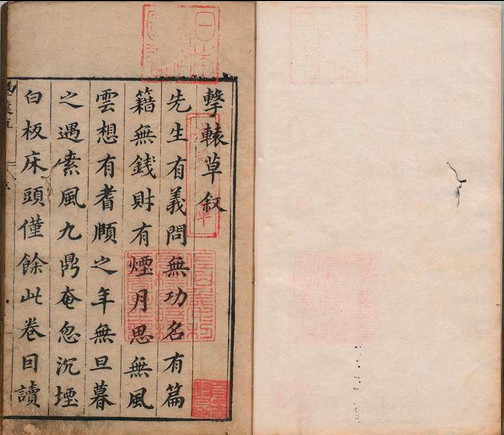 擊轅草叙
先生有義問無功名有篇
籍無錢財有煙月思無風
雲想有耆頤之年無旦暮
之遇素風九鼎奄忽沉堙
白板床頭僅餘此卷日讀